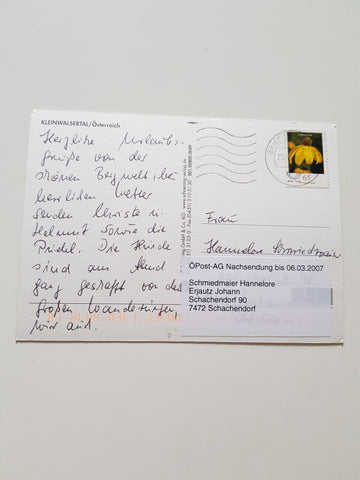 KLEINWALSERTAL/Österreich
Herzliche Urlaubs-
grüße von der
schönen Bergwelt, bei
herrlichem Wetter
senden Christe u.
Helmut sowie die
Die Hunde
sind am Abend
ganz geschafft von den
großen Wanderungen,
wir auch.
Frau
Hannelore Schmiedmaier
65
ÖPost-AG Nachsendung bis 06.03.2007
Schmiedmaier Hannelore
Erjautz Johann
Schachendorf 90
7472 Schachendorf